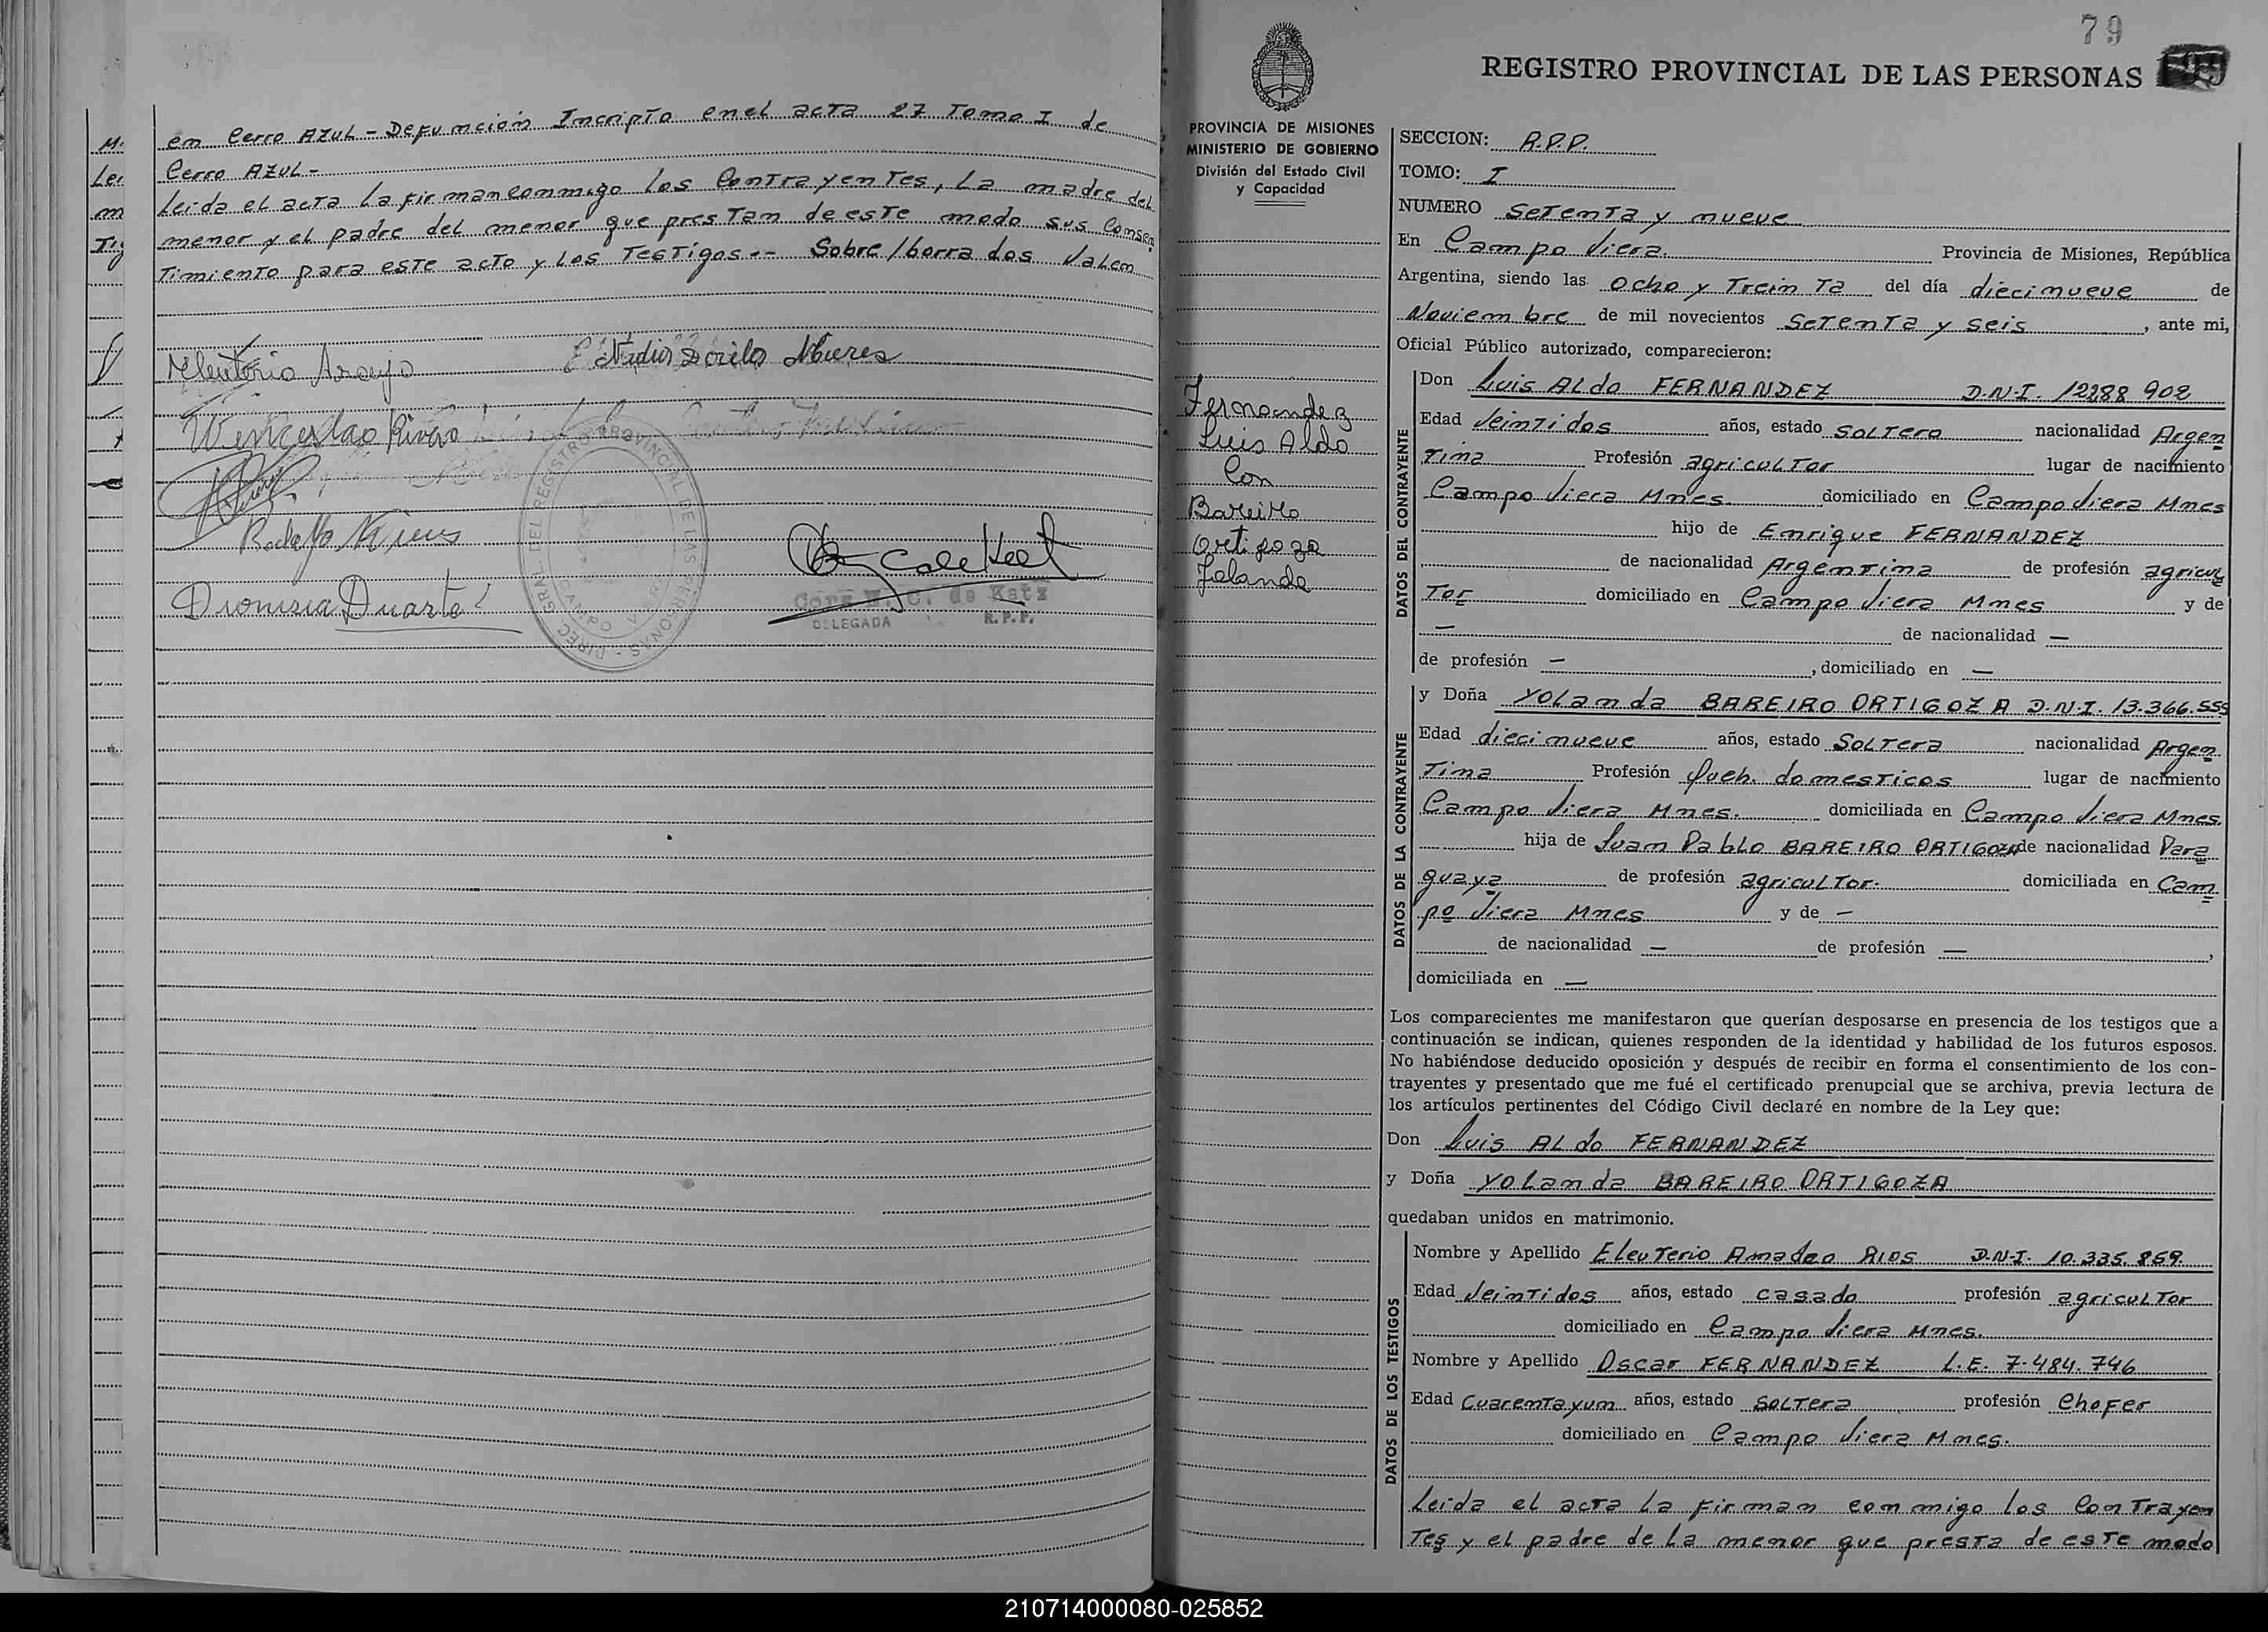 en Cerro AZUL - Defunción Inscripta en el acta 27 Tomo I de
Cerro AZUL -
Leida el acta la firman conmigo los Contrayentes, La madre del
menor y el padre del menor que prestan de este modo sus Consen
timiento para este acto y los Testigos -- Sobre/borrados Valen
Eleuterio Araujo
Wenceslao Rivero
Dionisia Duarte
DIREC. GRAL. DEL REGISTRO PROVINCIAL DE LAS PERSONAS
CAMPO VIERA
Cora E. C. de Katz
DELEGADA R.P.P.
79
REGISTRO PROVINCIAL DE LAS PERSONAS
PROVINCIA DE MISIONES
MINISTERIO DE GOBIERNO
División del Estado Civil
y Capacidad
Fernandez
Luis Aldo
Con
Bareiro
Ortigoza
Yolanda
SECCION: R.P.P.
TOMO: I
NUMERO Setenta y nueve
En Campo Viera. Provincia de Misiones, República
Argentina, siendo las Ocho y Treinta del día diecinueve de
Noviembre de mil novecientos Setenta y seis, ante mi,
Oficial Público autorizado, comparecieron:
DATOS DEL CONTRAYENTE
Don Luis ALdo FERNANDEZ D.N.I. 12288 902
Edad Veintidos años, estado Soltero nacionalidad Argen
tina Profesión agricultor lugar de nacimiento
Campo Viera Mnes. domiciliado en Campo Viera Mnes
hijo de Enrique FERNANDEZ
de nacionalidad Argentina de profesión agricul
tor domiciliado en Campo Viera Mnes y de
— de nacionalidad —
de profesión —, domiciliado en —
DATOS DE LA CONTRAYENTE
y Doña Yolanda BAREIRO ORTIGOZA D.N.I. 13.366.555
Edad diecinueve años, estado Soltera nacionalidad Argen
tina Profesión Queh. domesticos lugar de nacimiento
Campo Viera Mnes. domiciliada en Campo Viera Mnes.
hija de Juan Pablo BAREIRO ORTIGOZA de nacionalidad Para
guaya de profesión agricultor. domiciliada en Cam
po Viera Mnes y de —
de nacionalidad — de profesión —,
domiciliada en —
Los comparecientes me manifestaron que querían desposarse en presencia de los testigos que a
continuación se indican, quienes responden de la identidad y habilidad de los futuros esposos.
No habiéndose deducido oposición y después de recibir en forma el consentimiento de los con-
trayentes y presentado que me fué el certificado prenupcial que se archiva, previa lectura de
los artículos pertinentes del Código Civil declaré en nombre de la Ley que:
Don Luis ALdo FERNANDEZ
y Doña Yolanda BAREIRO ORTIGOZA
quedaban unidos en matrimonio.
DATOS DE LOS TESTIGOS
Nombre y Apellido Eleuterio Amadeo RIOS D.N.I. 10.335.859.
Edad Veintidos años, estado casado profesión agricultor
domiciliado en Campo Viera Mnes.
Nombre y Apellido Oscar FERNANDEZ L.E. 7.484.746
Edad Cuarentayun años, estado soltero profesión Chofer
domiciliado en Campo Viera Mnes.
Leida el acta la firman conmigo los Contrayen
tes y el padre de la menor que presta de este modo
210714000080-025852